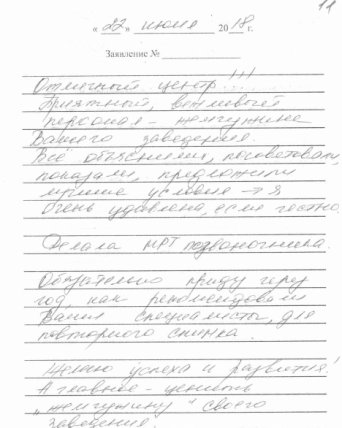 11
« 22 » июня 2018 г.
Заявление №
Отличный центр!!!...
Приятный, вежливый
персонал - жемчужина
Вашего заведения.
Всё объяснили, посоветовали,
показали, предложили
лучшие условия → я
очень удивлена, если честно.
Делала МРТ позвоночника.
Обязательно приду через
год, как рекомендовали
Ваши специалисты, для
повторного снимка.
Желаю успеха и развития!
А главное - ценить
"жемчужину" своего
заведения.